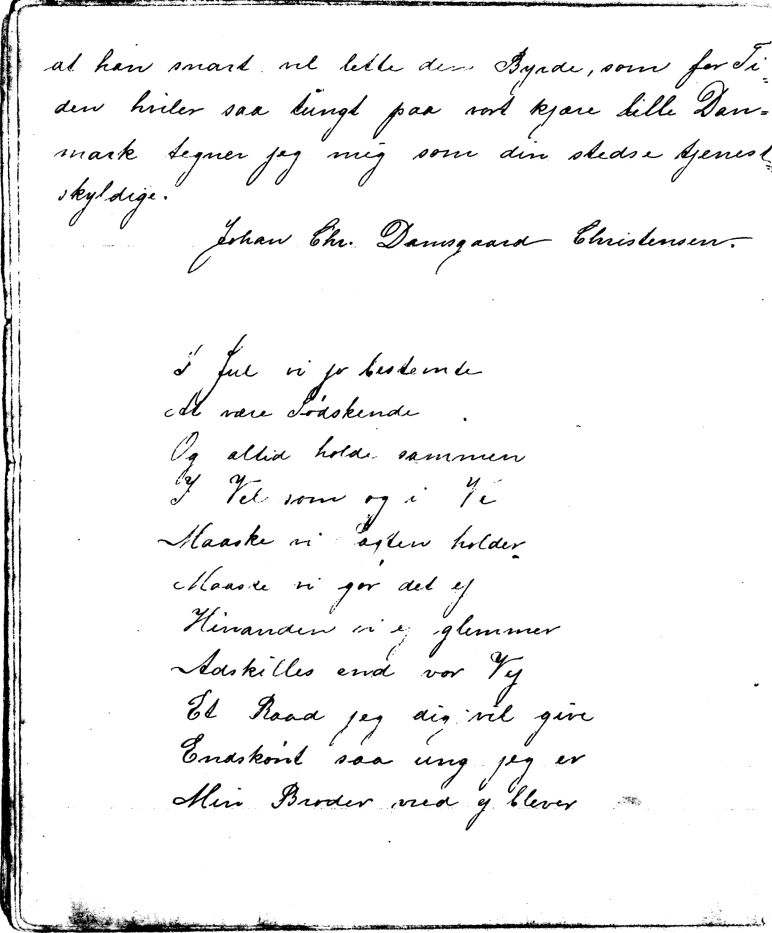 at han snart vil lette den Byrde, som for Ti=
den hviler saa tungt paa vort kjære lille Dan=
mark tegner jeg mig som din stedse tjenest=
skyldige.
Johan Chr. Damsgaard Christensen.
I Jul vi jo bestemte
At være Sødskende
Og altid holde sammen
I Vel som og i Ve
Maaske vi Pagten holder
Maaske vi gør det ej
Hinanden vi ej glemmer
Adskilles end vor Vej
Et Raad jeg dig vil give
Endskønt saa ung jeg er
Min Broder vred ej blever